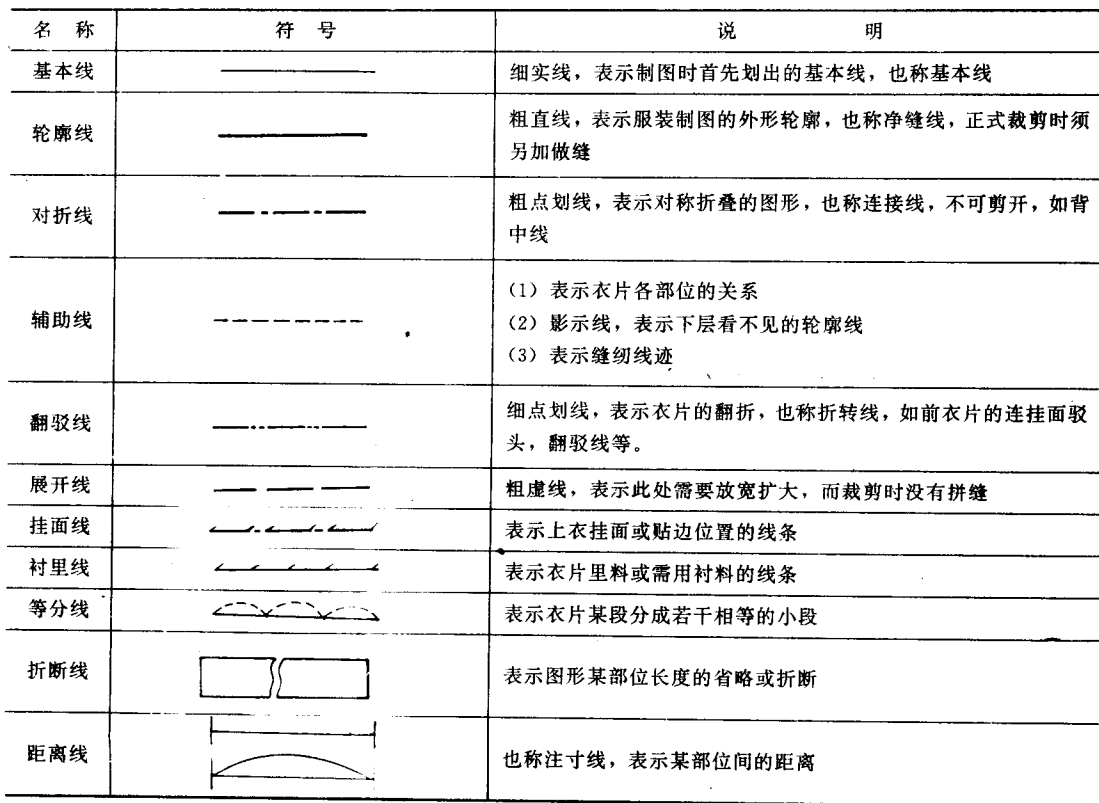 名 称 符 号 说 明
基本线 细实线，表示制图时首先划出的基本线，也称基本线
轮廓线 粗直线，表示服装制图的外形轮廓，也称净缝线，正式裁剪时须
另加做缝
对折线 粗点划线，表示对称折叠的图形，也称连接线，不可剪开，如背
中线
辅助线 （1）表示衣片各部位的关系
（2）影示线，表示下层看不见的轮廓线
（3）表示缝纫线迹
翻驳线 细点划线，表示衣片的翻折，也称折转线，如前衣片的连挂面驳
头，翻驳线等。
展开线 粗虚线，表示此处需要放宽扩大，而裁剪时没有拼缝
挂面线 表示上衣挂面或贴边位置的线条
衬里线 表示衣片里料或需用衬料的线条
等分线 表示衣片某段分成若干相等的小段
折断线 表示图形某部位长度的省略或折断
距离线 也称注寸线，表示某部位间的距离